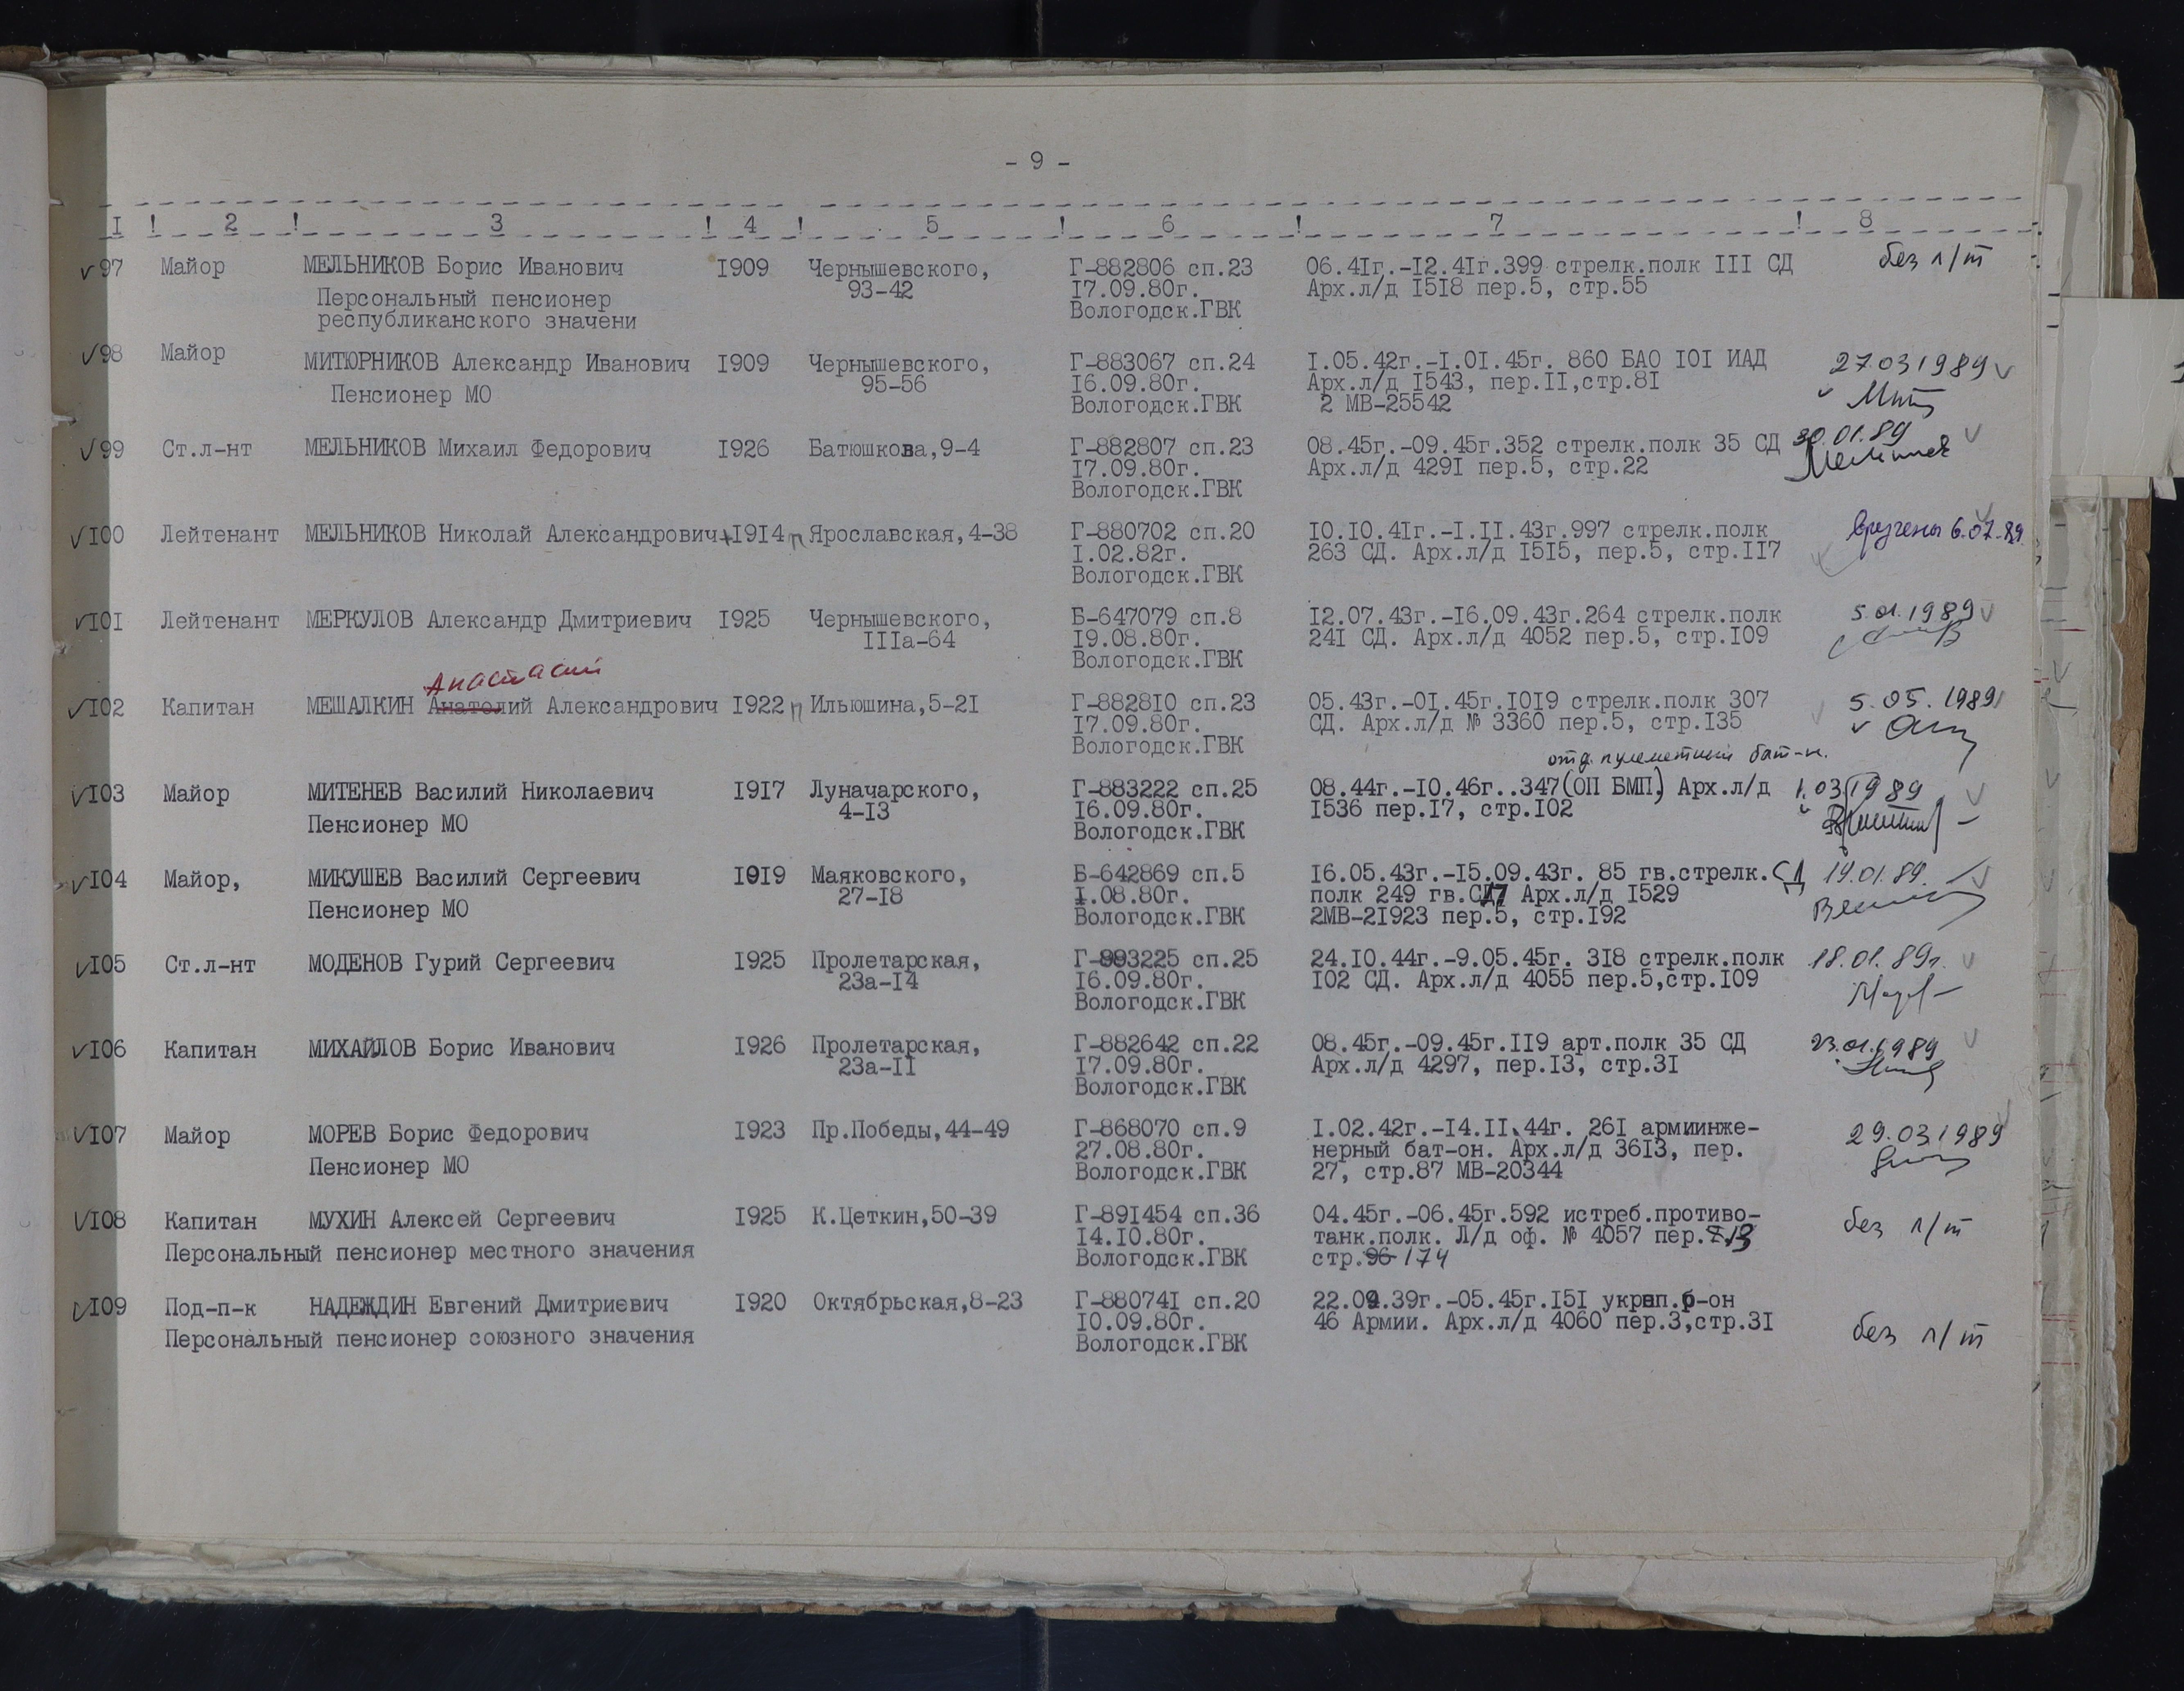 - 9 -
I ! 2 ! 3 ! 4 ! 5 ! 6 ! 7 ! 8
97 Майор МЕЛЬНИКОВ Борис Иванович 1909 Чернышевского, Г-882806 сп.23 06.41г.-12.41г.399 стрелк.полк III СД без л/т
93-42 17.09.80г. Арх.л/д 1518 пер.5, стр.55
Персональный пенсионер
республиканского значени Вологодск.ГВК
98 Майор МИТЮРНИКОВ Александр Иванович 1909 Чернышевского, Г-883067 сп.24 1.05.42г.-1.01.45г. 860 БАО 101 ИАД 27031989
95-56 16.09.80г. Арх.л/д 1543, пер.11,стр.81
Пенсионер МО Вологодск.ГВК 2 МВ-25542
99 Ст.л-нт МЕЛЬНИКОВ Михаил Федорович 1926 Батюшкова,9-4 Г-882807 сп.23 08.45г.-09.45г.352 стрелк.полк 35 СД 30.01.89
17.09.80г. Арх.л/д 4291 пер.5, стр.22
Вологодск.ГВК
100 Лейтенант МЕЛЬНИКОВ Николай Александрович+1914 п Ярославская,4-38 Г-880702 сп.20 10.10.41г.-1.11.43г.997 стрелк.полк вручены 6.07.89
1.02.82г. 263 СД. Арх.л/д 1515, пер.5, стр.117
Вологодск.ГВК
101 Лейтенант МЕРКУЛОВ Александр Дмитриевич 1925 Чернышевского, Б-647079 сп.8 12.07.43г.-16.09.43г.264 стрелк.полк 5.01.1989
111а-64 19.08.80г. 241 СД. Арх.л/д 4052 пер.5, стр.109
Вологодск.ГВК
Анастасий
102 Капитан МЕШАЛКИН Анатолий Александрович 1922 п Ильюшина,5-21 Г-882810 сп.23 05.43г.-01.45г.1019 стрелк.полк 307 5.05.1989
17.09.80г. СД. Арх.л/д № 3360 пер.5, стр.135
Вологодск.ГВК
отд. пулеметный бат-н.
103 Майор МИТЕНЕВ Василий Николаевич 1917 Луначарского, Г-883222 сп.25 08.44г.-10.46г..347(ОП БМП.) Арх.л/д 1.03.1989
4-13 16.09.80г. 1536 пер.17, стр.102
Пенсионер МО Вологодск.ГВК
104 Майор, МИКУШЕВ Василий Сергеевич 1919 Маяковского, Б-642869 сп.5 16.05.43г.-15.09.43г. 85 гв.стрелк.СД 19.01.89.
27-18 1.08.80г. полк 249 гв.СД Арх.л/д 1529
Пенсионер МО Вологодск.ГВК 2МВ-21923 пер.5, стр.192
105 Ст.л-нт МОДЕНОВ Гурий Сергеевич 1925 Пролетарская, Г-993225 сп.25 24.10.44г.-9.05.45г. 318 стрелк.полк 18.01.89г.
23а-14 16.09.80г. 102 СД. Арх.л/д 4055 пер.5,стр.109
Вологодск.ГВК
106 Капитан МИХАЙЛОВ Борис Иванович 1926 Пролетарская, Г-882642 сп.22 08.45г.-09.45г.119 арт.полк 35 СД 23.01.1989
23а-11 17.09.80г. Арх.л/д 4297, пер.13, стр.31
Вологодск.ГВК
107 Майор МОРЕВ Борис Федорович 1923 Пр.Победы,44-49 Г-868070 сп.9 1.02.42г.-14.11.44г. 261 армиинже- 29.03.1989
27.08.80г. нерный бат-он. Арх.л/д 3613, пер.
Пенсионер МО Вологодск.ГВК 27, стр.87 МВ-20344
108 Капитан МУХИН Алексей Сергеевич 1925 К.Цеткин,50-39 Г-891454 сп.36 04.45г.-06.45г.592 истреб.противо- без л/т
14.10.80г. танк.полк. Л/д оф. № 4057 пер.7.13
Персональный пенсионер местного значения Вологодск.ГВК стр.96 174
109 Под-п-к НАДЕЖДИН Евгений Дмитриевич 1920 Октябрьская,8-23 Г-880741 сп.20 22.09.39г.-05.45г.151 укреп.р-он
10.09.80г. 46 Армии. Арх.л/д 4060 пер.3,стр.31
Персональный пенсионер союзного значения Вологодск.ГВК без л/т